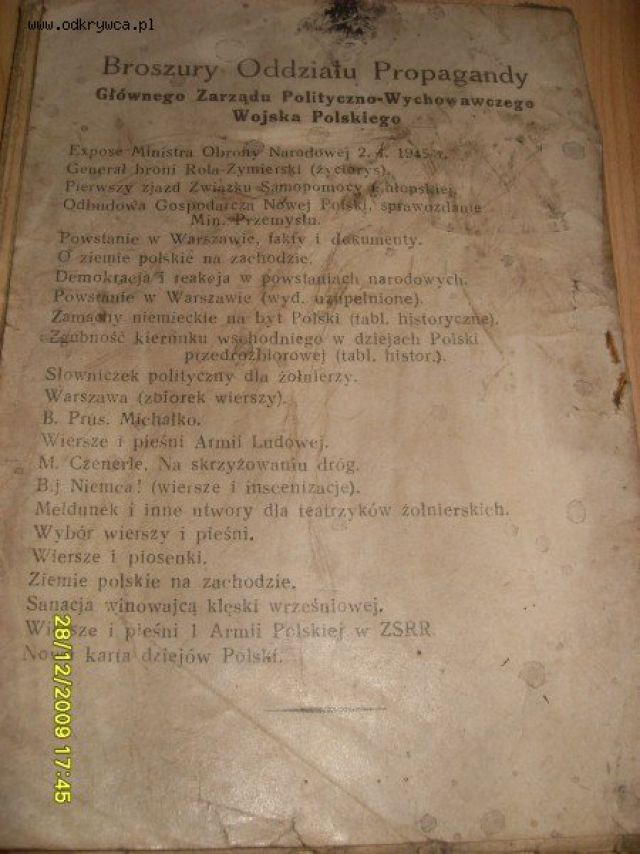 www.odkrywca.pl
Broszury Oddziału Propagandy
Głównego Zarządu Polityczno-Wychowawczego
Wojska Polskiego
Expose Ministra Obrony Narodowej 2. 1. 1945 r.
Generał broni Rola-Żymierski (życiorys).
Pierwszy zjazd Związku Samopomocy Chłopskiej.
Odbudowa Gospodarcza Nowej Polski, sprawozdanie
Min. Przemysłu.
Powstanie w Warszawie, fakty i dokumenty.
O ziemie polskie na zachodzie.
Demokracja i reakcja w powstaniach narodowych.
Powstanie w Warszawie (wyd. uzupełnione).
Zamachy niemieckie na byt Polski (tabl. historyczne).
Zgubność kierunku wschodniego w dziejach Polski
przedrozbiorowej (tabl. histor.).
Słowniczek polityczny dla żołnierzy.
Warszawa (zbiorek wierszy).
B. Prus. Michałko.
Wiersze i pieśni Armii Ludowej.
M. Czenerle. Na skrzyżowaniu dróg.
Bij Niemca! (wiersze i inscenizacje).
Meldunek i inne utwory dla teatrzyków żołnierskich.
Wybór wierszy i pieśni.
Wiersze i piosenki.
Ziemie polskie na zachodzie.
Sanacja winowajcą klęski wrześniowej.
Wiersze i pieśni 1 Armii Polskiej w ZSRR.
Nowa karta dziejów Polski.
28/12/2009 17:45